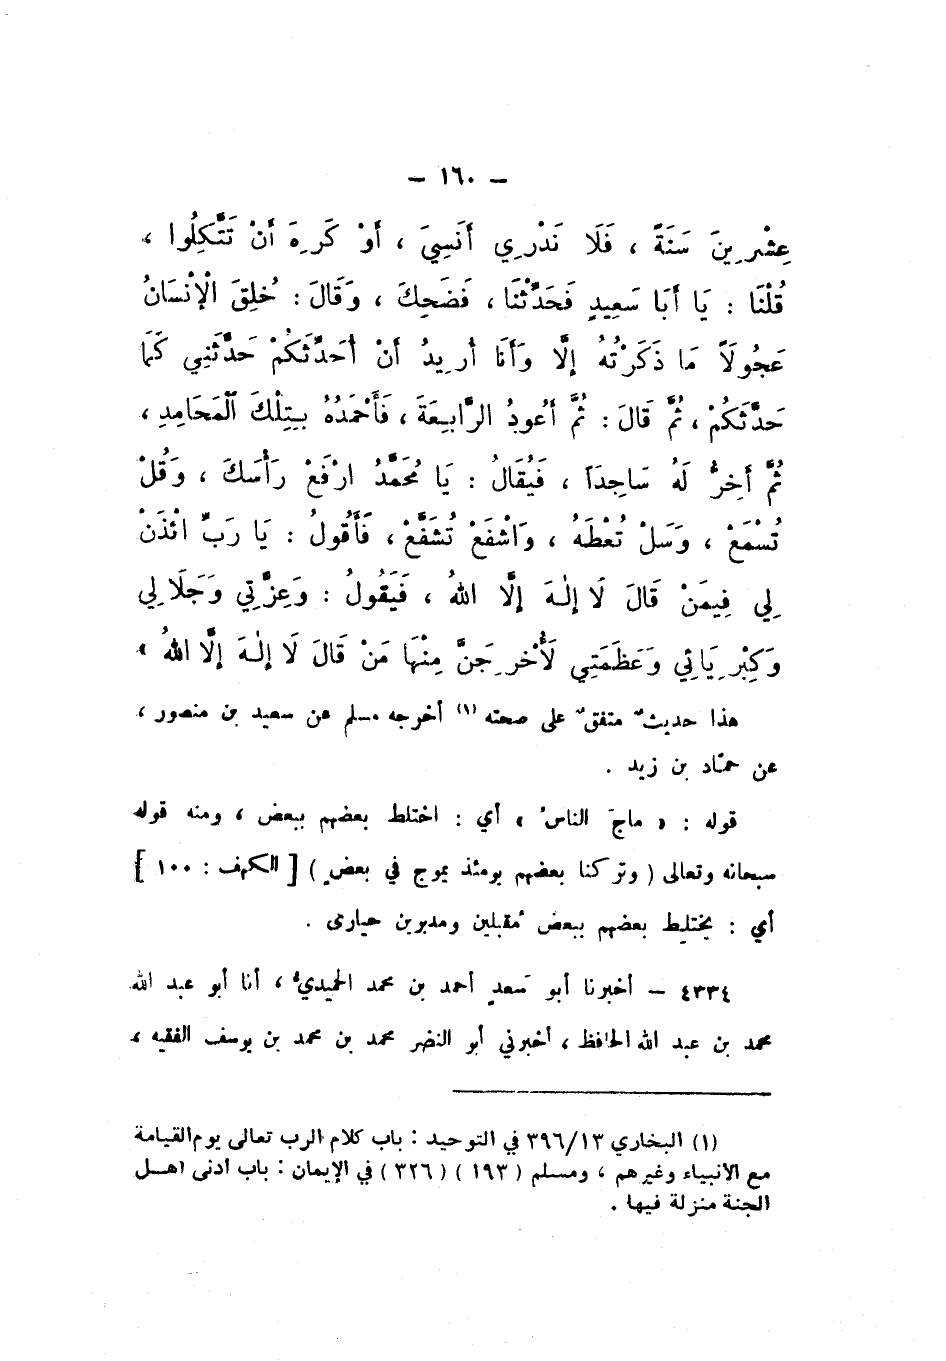 – ١٦٠ –
عِشْرِينَ سَنَةً ، فَلَا نَدْرِي أَنَسِيَ ، أَوْ كَرِهَ أَنْ تَتَّكِلُوا ،
قُلْنَا : يَا أَبَا سَعِيدٍ فَحَدِّثْنَا ، فَضَحِكَ ، وَقَالَ : خُلِقَ الْإِنْسَانُ
عَجُولَاً مَا ذَكَرْتُهُ إِلَّا وَأَنَا أُرِيدُ أَنْ أُحَدِّثَكُمْ حَدَّثَنِي كَمَا
حَدَّثَكُمْ ، ثُمَّ قَالَ : ثُمَّ أَعُودُ الرَّابِعَةَ ، فَأَحْمَدُهُ بِتِلْكَ الْمَحَامِدِ ،
ثُمَّ أَخِرُّ لَهُ سَاجِدَاً ، فَيُقَالُ : يَا مُحَمَّدُ ارْفَعْ رَأْسَكَ ، وَقُلْ
تُسْمَعْ ، وَسَلْ تُعْطَهُ ، وَاشْفَعْ تُشَفَّعْ ، فَأَقُولُ : يَا رَبِّ ائْذَنْ
لِي فِيمَنْ قَالَ لَا إِلٰهَ إِلَّا اللهُ ، فَيَقُولُ : وَعِزَّتِي وَجَلَالِي
وَكِبْرِيَائِي وَعَظَمَتِي لَأُخْرِجَنَّ مِنْهَا مَنْ قَالَ لَا إِلٰهَ إِلَّا اللهُ »
هذا حديثٌ متفقٌ على صحته (١) أخرجه مسلم عن سعيد بن منصور ،
عن حمّاد بن زيد .
قوله : « ماجَ الناسُ » أي : اختلط بعضهم ببعض ، ومنه قوله
سبحانه وتعالى ( وتركنا بعضهم يومئذ يموج في بعضٍ ) [ الكهف : ١٠٠ ]
أي : يختلِط بعضهم ببعض مُقبلين ومدبرين حيارى .
٤٣٣٤ – أخبرنا أبو سَعدٍ أحمد بن محمد الحميديُّ ، أنا أبو عبد الله
محمد بن عبد الله الحافظ ، أخبرني أبو النضر محمد بن محمد بن يوسف الفقيه ،
(١) البخاري ٣٩٦/١٣ في التوحيد : باب كلام الرب تعالى يوم القيامة
مع الأنبياء وغيرهم ، ومسلم ( ١٩٣ ) ( ٣٢٦ ) في الإيمان : باب ادنى اهل
الجنة منزلة فيها .